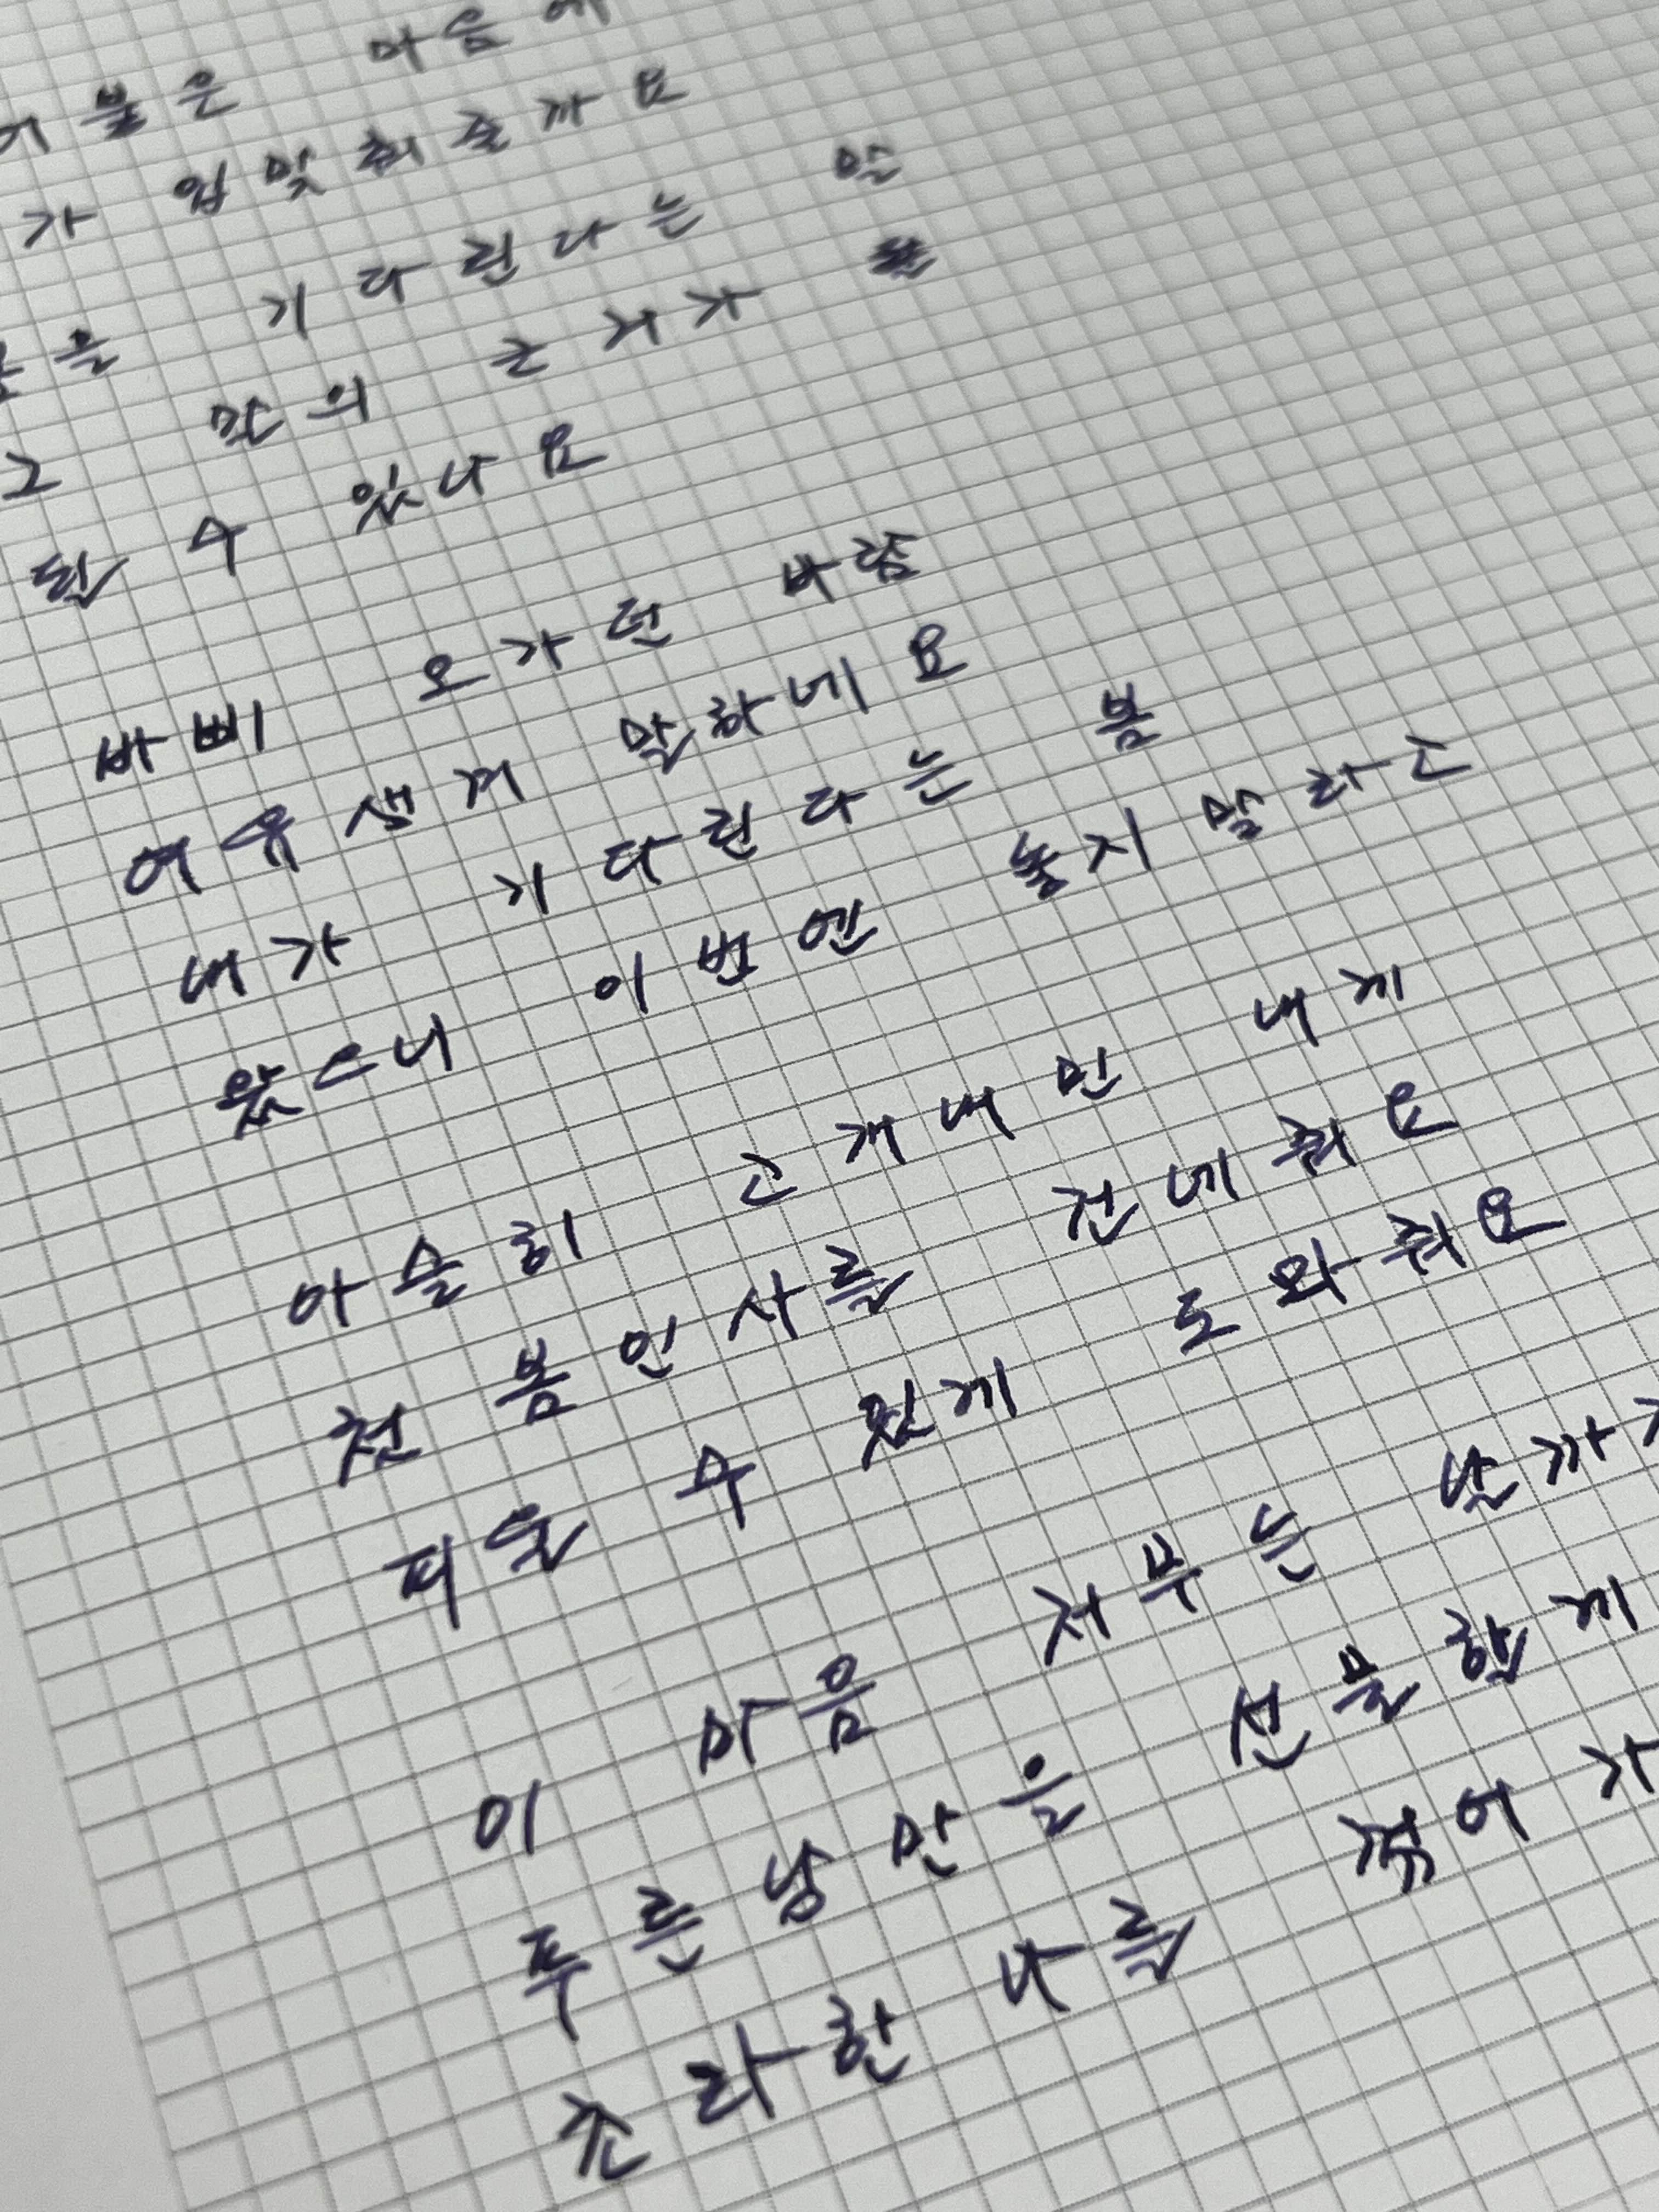 어붙은 마음에
가 입맞춰줄까요
을 기다린다는 말
그 말의 근거가
될 수 있나요
바삐 오가던 바람
여유 생겨 말하네요
내가 기다린다는 봄
왔으니 이번엔 놓지 말라고
아슬히 고개 내민 내게
첫 봄인사를 건네줘요
피울 수 있게 도와줘요
이 마음 저무는 날까
푸른 낭만을 선물할게
초라한 나를 꺾어가